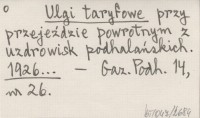 Ulgi taryfowe przy
przejeździe powrotnym z
uzdrowisk podhalańskich.
1926... – Gaz. Podh. 14,
nr 26.